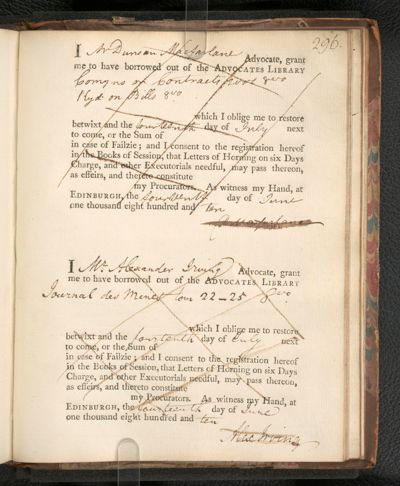 296.
I Mr Duncan Macfarlane Advocate, grant
me to have borrowed out of the ADVOCATES LIBRARY
Comyns on Contracts 8vo
Kyd on Bills 8vo
which I oblige me to restore
betwixt and the fourteenth day of July next
to come, or the Sum of
in case of Failzie; and I consent to the registration hereof
in the Books of Session, that Letters of Horning on six Days
Charge, and other Executorials needful, may pass thereon,
as effeirs, and thereto constitute
my Procurators. As witness my Hand, at
EDINBURGH, the fourteenth day of June
one thousand eight hundred and ten
D Macfarlane
I Mr. Alexander Irving Advocate, grant
me to have borrowed out of the ADVOCATES LIBRARY
Journal des Mines tom 22-25 8vo
which I oblige me to restore
betwixt and the fourteenth day of July next
to come, or the Sum of
in case of Failzie; and I consent to the registration hereof
in the Books of Session, that Letters of Horning on six Days
Charge, and other Executorials needful, may pass thereon,
as effeirs, and thereto constitute
my Procurators. As witness my Hand, at
EDINBURGH, the fourteenth day of June
one thousand eight hundred and ten
Alex Irving